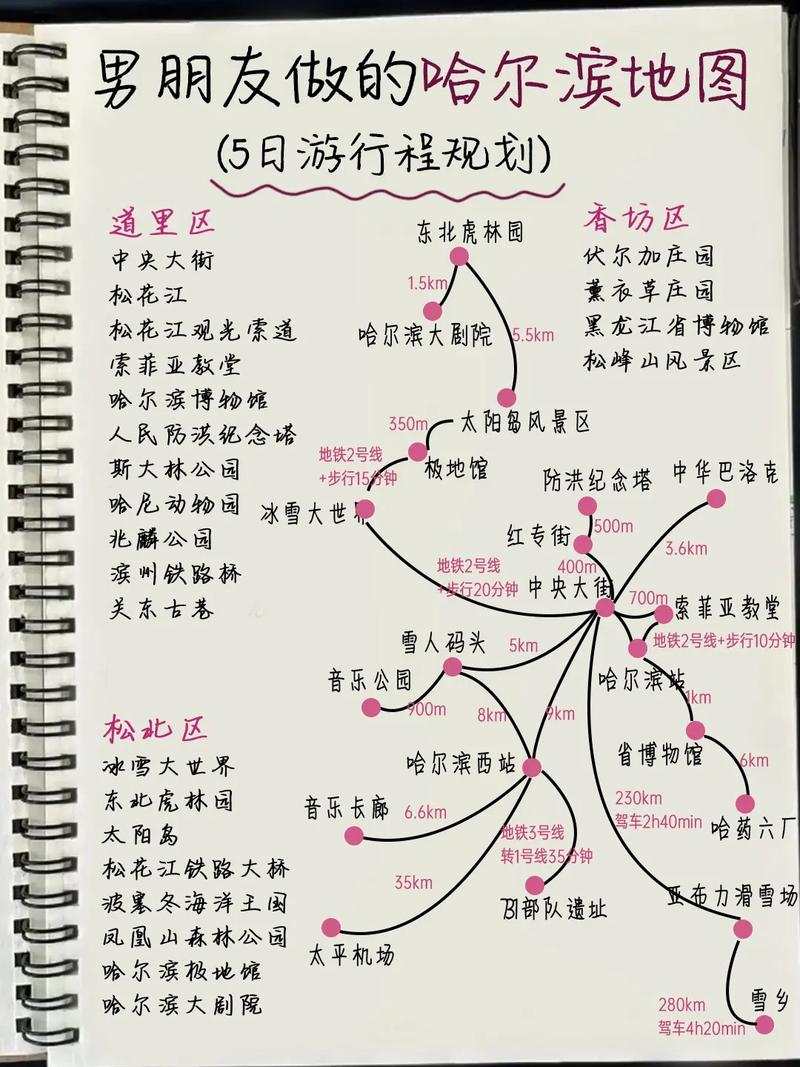 男朋友做的哈尔滨地图
(5日游行程规划)
道里区
中央大街
松花江
松花江观光索道
索菲亚教堂
哈尔滨博物馆
人民防洪纪念塔
斯大林公园
哈尼动物园
兆麟公园
滨州铁路桥
关东古巷
松北区
冰雪大世界
东北虎林园
太阳岛
松花江铁路大桥
波塞冬海洋王国
凤凰山森林公园
哈尔滨极地馆
哈尔滨大剧院
香坊区
伏尔加庄园
薰衣草庄园
黑龙江省博物馆
松峰山风景区
东北虎林园
1.5km
哈尔滨大剧院
5.5km
350m
太阳岛风景区
地铁2号线
+步行15分钟
极地馆
冰雪大世界
防洪纪念塔
中华巴洛克
红专街
500m
3.6km
400m
地铁2号线
+步行20分钟
中央大街
700m
索菲亚教堂
地铁2号线+步行10分钟
雪人码头
5km
音乐公园
哈尔滨站
1km
900m
8km
9km
省博物馆
哈尔滨西站
6km
音乐长廊
6.6km
230km
驾车2h40min
哈药六厂
地铁3号线
转1号线35分钟
35km
731部队遗址
亚布力滑雪场
太平机场
雪乡
280km
驾车4h20min